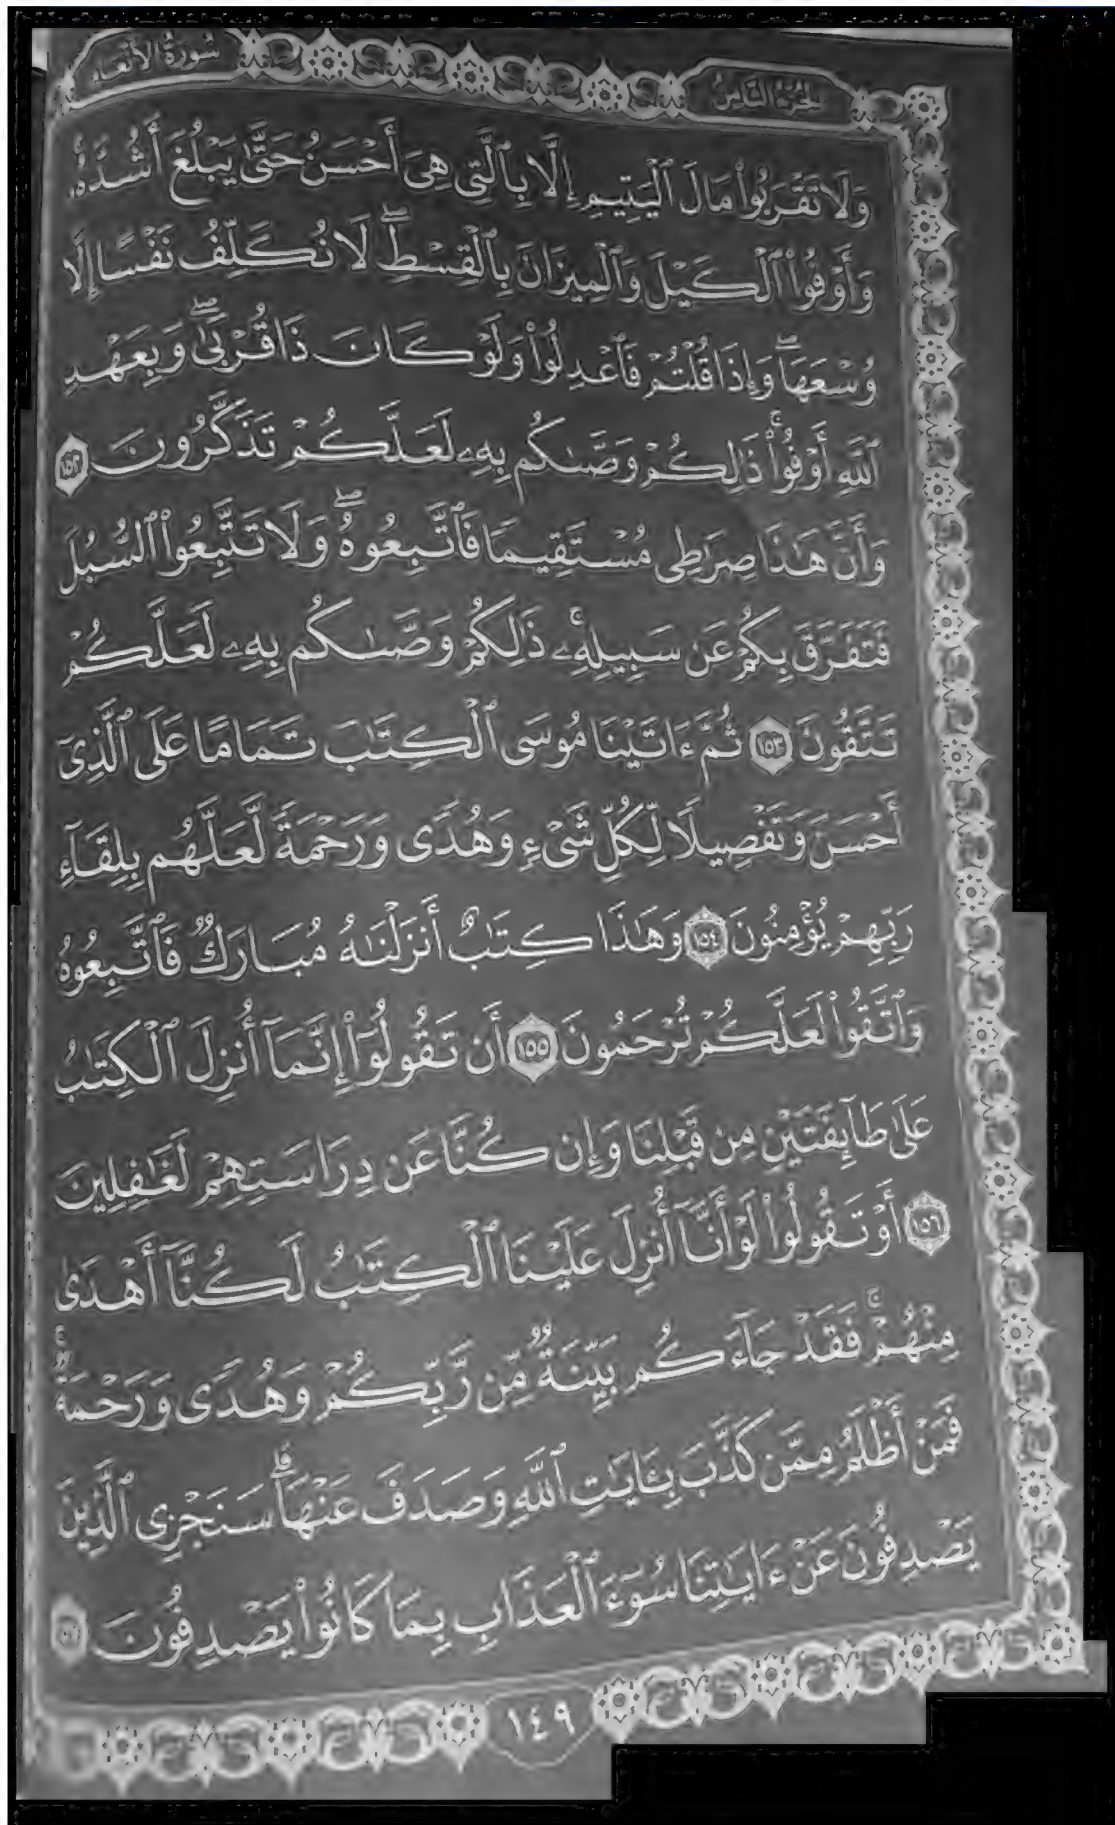 سُورَةُ الأَنْعَامِ
الجُزْءُ الثَّامِنُ
وَلَا تَقْرَبُوا۟ مَالَ ٱلْيَتِيمِ إِلَّا بِٱلَّتِى هِىَ أَحْسَنُ حَتَّىٰ يَبْلُغَ أَشُدَّهُۥ
وَأَوْفُوا۟ ٱلْكَيْلَ وَٱلْمِيزَانَ بِٱلْقِسْطِ ۖ لَا نُكَلِّفُ نَفْسًا إِلَّا
وُسْعَهَا ۖ وَإِذَا قُلْتُمْ فَٱعْدِلُوا۟ وَلَوْ كَانَ ذَا قُرْبَىٰ ۖ وَبِعَهْدِ
ٱللَّهِ أَوْفُوا۟ ۚ ذَٰلِكُمْ وَصَّىٰكُم بِهِۦ لَعَلَّكُمْ تَذَكَّرُونَ ١٥٢
وَأَنَّ هَـٰذَا صِرَٰطِى مُسْتَقِيمًا فَٱتَّبِعُوهُ ۖ وَلَا تَتَّبِعُوا۟ ٱلسُّبُلَ
فَتَفَرَّقَ بِكُمْ عَن سَبِيلِهِۦ ۚ ذَٰلِكُمْ وَصَّىٰكُم بِهِۦ لَعَلَّكُمْ
تَتَّقُونَ ١٥٣ ثُمَّ ءَاتَيْنَا مُوسَى ٱلْكِتَـٰبَ تَمَامًا عَلَى ٱلَّذِىٓ
أَحْسَنَ وَتَفْصِيلًا لِّكُلِّ شَىْءٍ وَهُدًى وَرَحْمَةً لَّعَلَّهُم بِلِقَآءِ
رَبِّهِمْ يُؤْمِنُونَ ١٥٤ وَهَـٰذَا كِتَـٰبٌ أَنزَلْنَـٰهُ مُبَارَكٌ فَٱتَّبِعُوهُ
وَٱتَّقُوا۟ لَعَلَّكُمْ تُرْحَمُونَ ١٥٥ أَن تَقُولُوٓا۟ إِنَّمَآ أُنزِلَ ٱلْكِتَـٰبُ
عَلَىٰ طَآئِفَتَيْنِ مِن قَبْلِنَا وَإِن كُنَّا عَن دِرَاسَتِهِمْ لَغَـٰفِلِينَ
١٥٦ أَوْ تَقُولُوا۟ لَوْ أَنَّآ أُنزِلَ عَلَيْنَا ٱلْكِتَـٰبُ لَكُنَّآ أَهْدَىٰ
مِنْهُمْ ۚ فَقَدْ جَآءَكُم بَيِّنَةٌ مِّن رَّبِّكُمْ وَهُدًى وَرَحْمَةٌ ۚ
فَمَنْ أَظْلَمُ مِمَّن كَذَّبَ بِـَٔايَـٰتِ ٱللَّهِ وَصَدَفَ عَنْهَا ۗ سَنَجْزِى ٱلَّذِينَ
يَصْدِفُونَ عَنْ ءَايَـٰتِنَا سُوٓءَ ٱلْعَذَابِ بِمَا كَانُوا۟ يَصْدِفُونَ
١٤٩